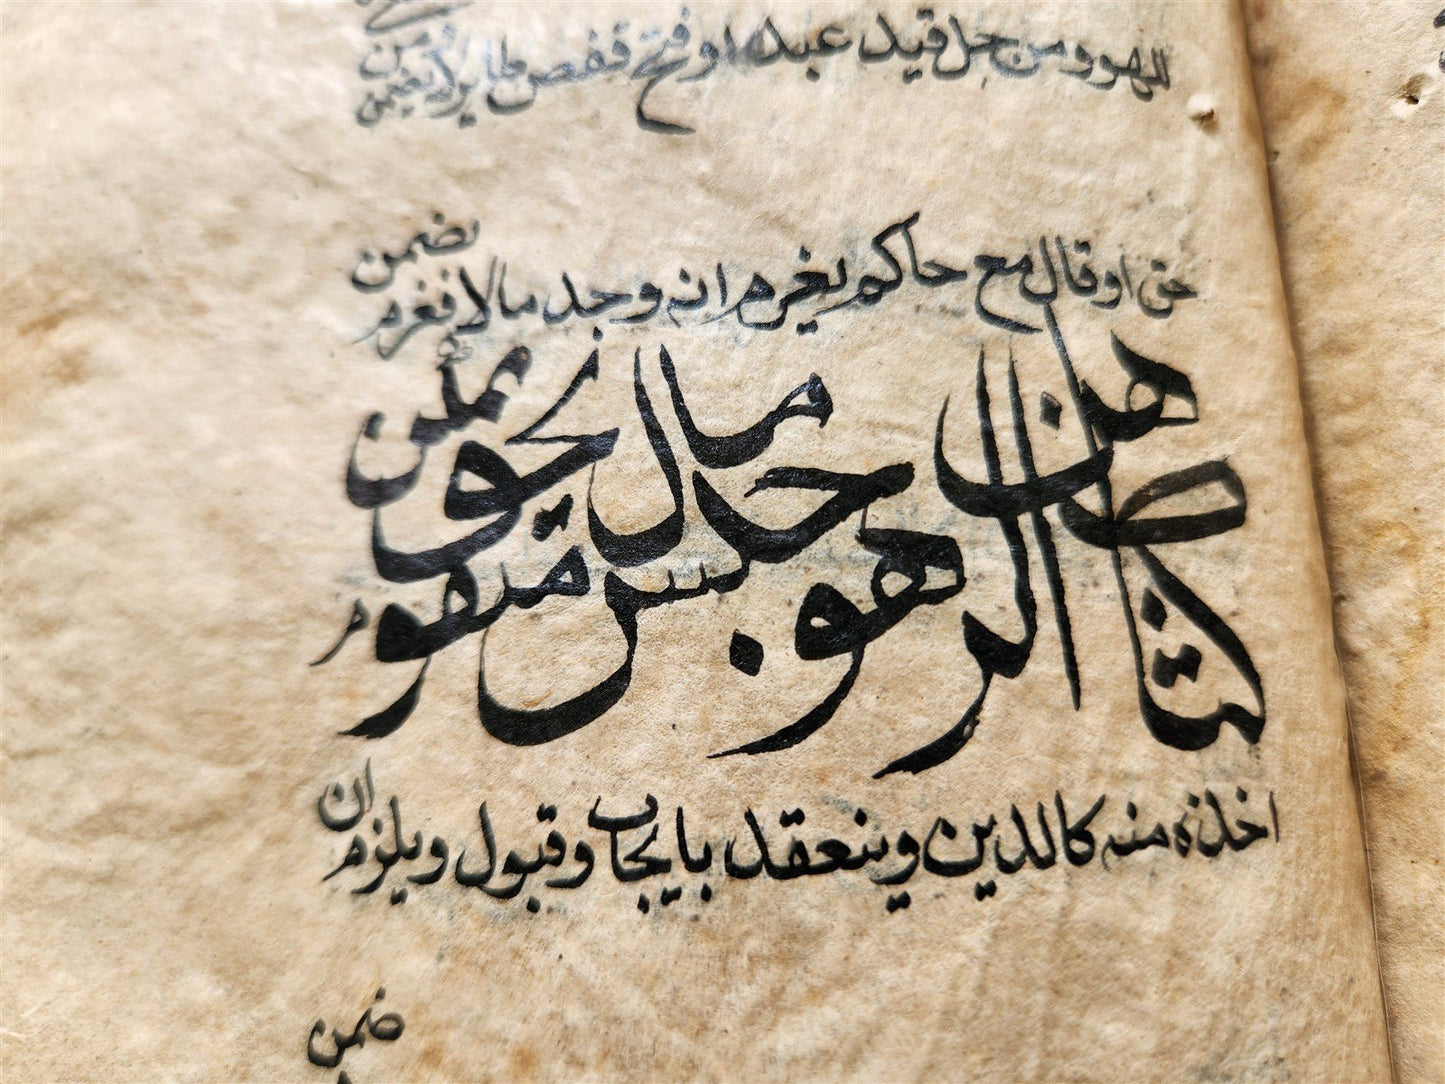 للهو ومن حل قيد عبده او فتح قفص طاير لا يضمن
حتى او قال مع حاكم يغرم انه وجد مالا فغرم يضمن
كتاب الرهن
هو حبس مال متقوم بحق يمكن
اخذه منه كالدين وينعقد بايجاب وقبول ويلزم ان
ضمن